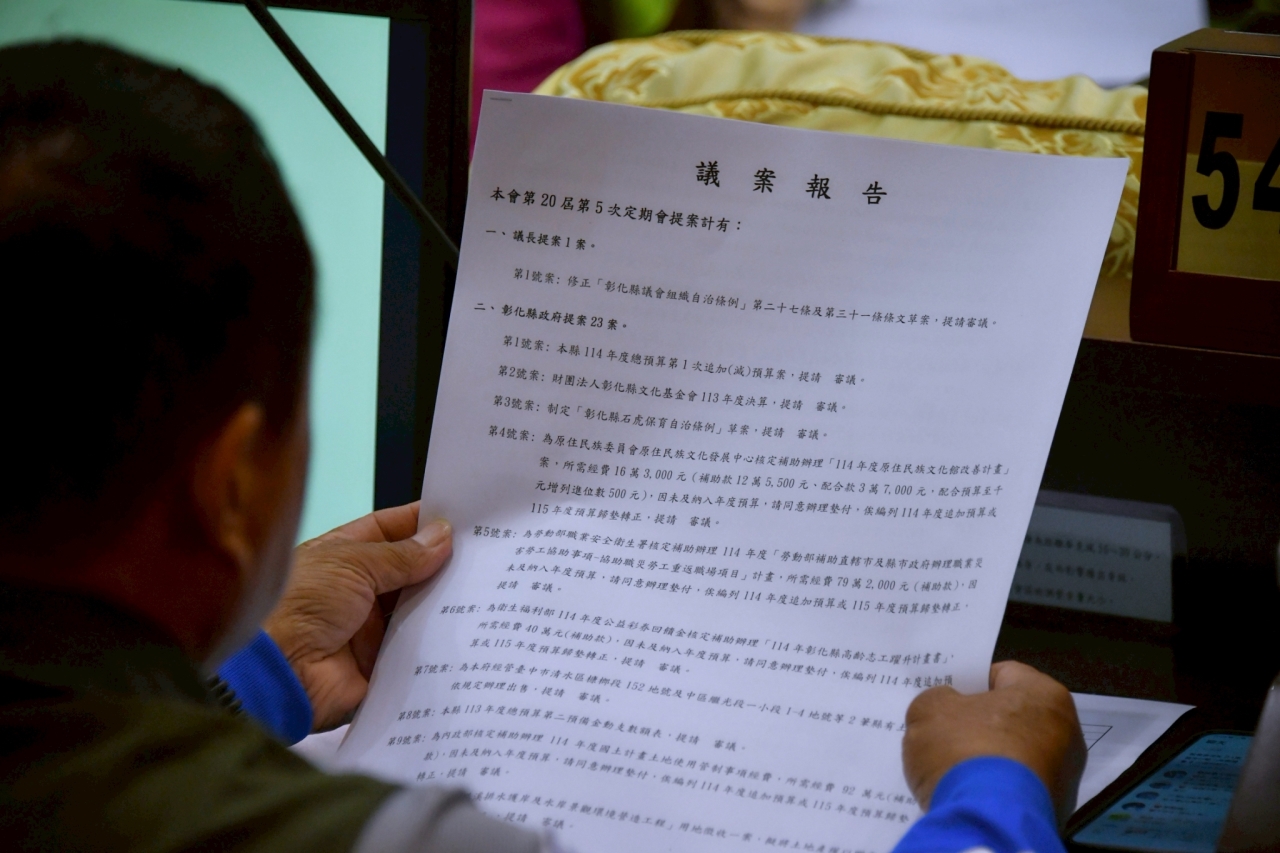 議案報告
本會第20屆第5次定期會提案計有：
一、議長提案1案。
第1號案：修正「彰化縣議會組織自治條例」第二十七條及第三十一條條文草案，提請審議。
二、彰化縣政府提案23案。
第1號案：本縣114年度總預算第1次追加(減)預算案，提請 審議。
第2號案：財團法人彰化縣文化基金會113年度決算，提請 審議。
第3號案：制定「彰化縣石虎保育自治條例」草案，提請 審議。
第4號案：為原住民族委員會原住民族文化發展中心核定補助辦理「114年度原住民族文化館改善計畫」
案，所需經費16萬3,000元（補助款12萬5,500元、配合款3萬7,000元，配合預算至千
元增列進位數500元），因未及納入年度預算，請同意辦理墊付，俟編列114年度追加預算或
115年度預算歸墊轉正，提請 審議。
第5號案：為勞動部職業安全衛生署核定補助辦理114年度「勞動部補助直轄市及縣市政府辦理職業災
害勞工協助事項-協助職災勞工重返職場項目」計畫，所需經費79萬2,000元（補助款），因
未及納入年度預算，請同意辦理墊付，俟編列114年度追加預算或115年度預算歸墊轉正，
提請 審議。
第6號案：為衛生福利部114年度公益彩券回饋金核定補助辦理「114年彰化縣高齡志工躍升計畫書」，
所需經費40萬元(補助款)，因未及納入年度預算，請同意辦理墊付，俟編列114年度追加預
算或115年度預算歸墊轉正，提請 審議。
第7號案：為本府經管臺中市清水區槺榔段152地號及中區繼光段一小段1-4地號等2筆縣有土
依規定辦理出售，提請 審議。
第8號案：本縣113年度總預算第二預備金動支數額表，提請 審議。
第9號案：為內政部核定補助辦理114年度國土計畫土地使用管制事項經費，所需經費92萬元(補助
款)，因未及納入年度預算，請同意辦理墊付，俟編列114年度追加預算或115年度預算歸墊
轉正，提請 審議。
排水護岸及水岸景觀環境營造工程」用地徵收一案，
提請 審議。
54